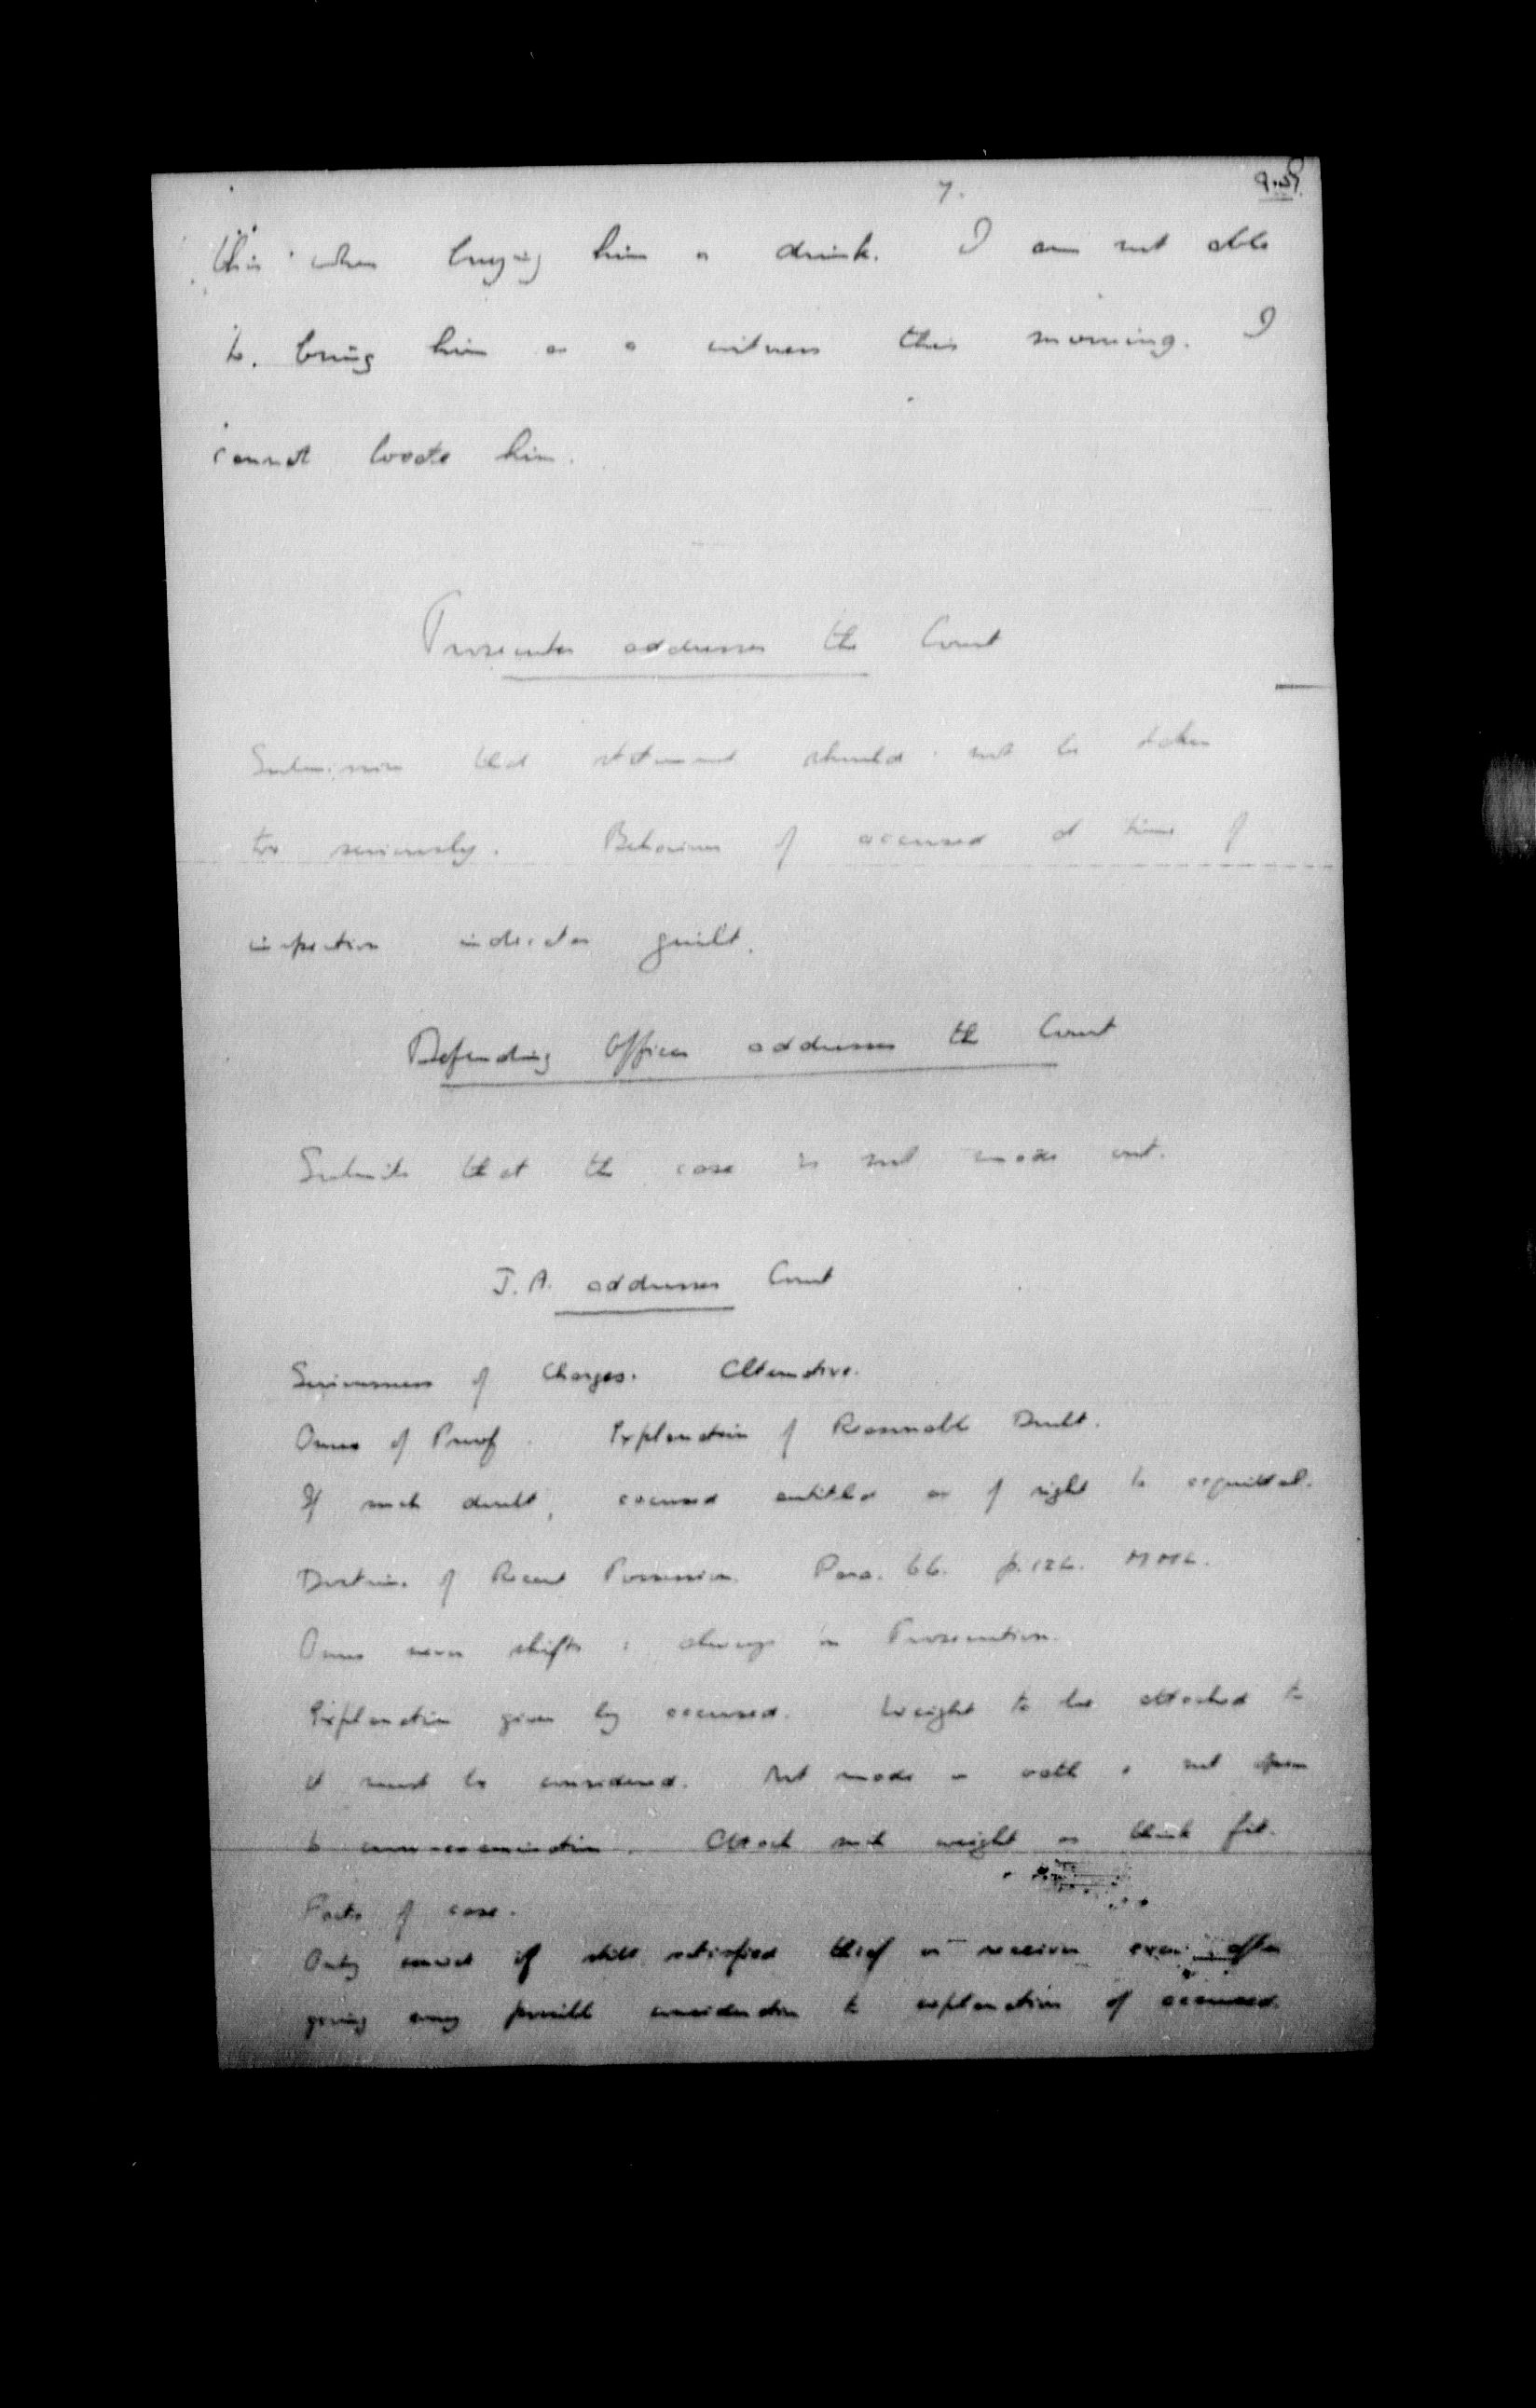 7.
this when buying him a drink. I am not able
to bring him as a witness this morning. I
cannot locate him.
Prosecutor addresses the Court
Submission that statement should not be taken
too seriously. Behaviour of accused at time of
inspection indicates guilt.
Defending Officer addresses the Court
Submits that the case is not made out.
J.A. addresses Court
Seriousness of Charges. Alternative.
Onus of Proof. Explanation of Reasonable Doubt.
If such doubt, accused entitled as of right to acquittal.
Doctrine of Recent Possession. Para. 66. p. 126. MML.
Onus never shifts: always on Prosecution.
Explanation given by accused. Weight to be attached to
it must be considered. Not made on oath & not open
to cross-examination. Attach such weight as think fit.
Facts of case.
Only convict if still satisfied thief or receiver even after
giving every possible consideration to explanation of accused.